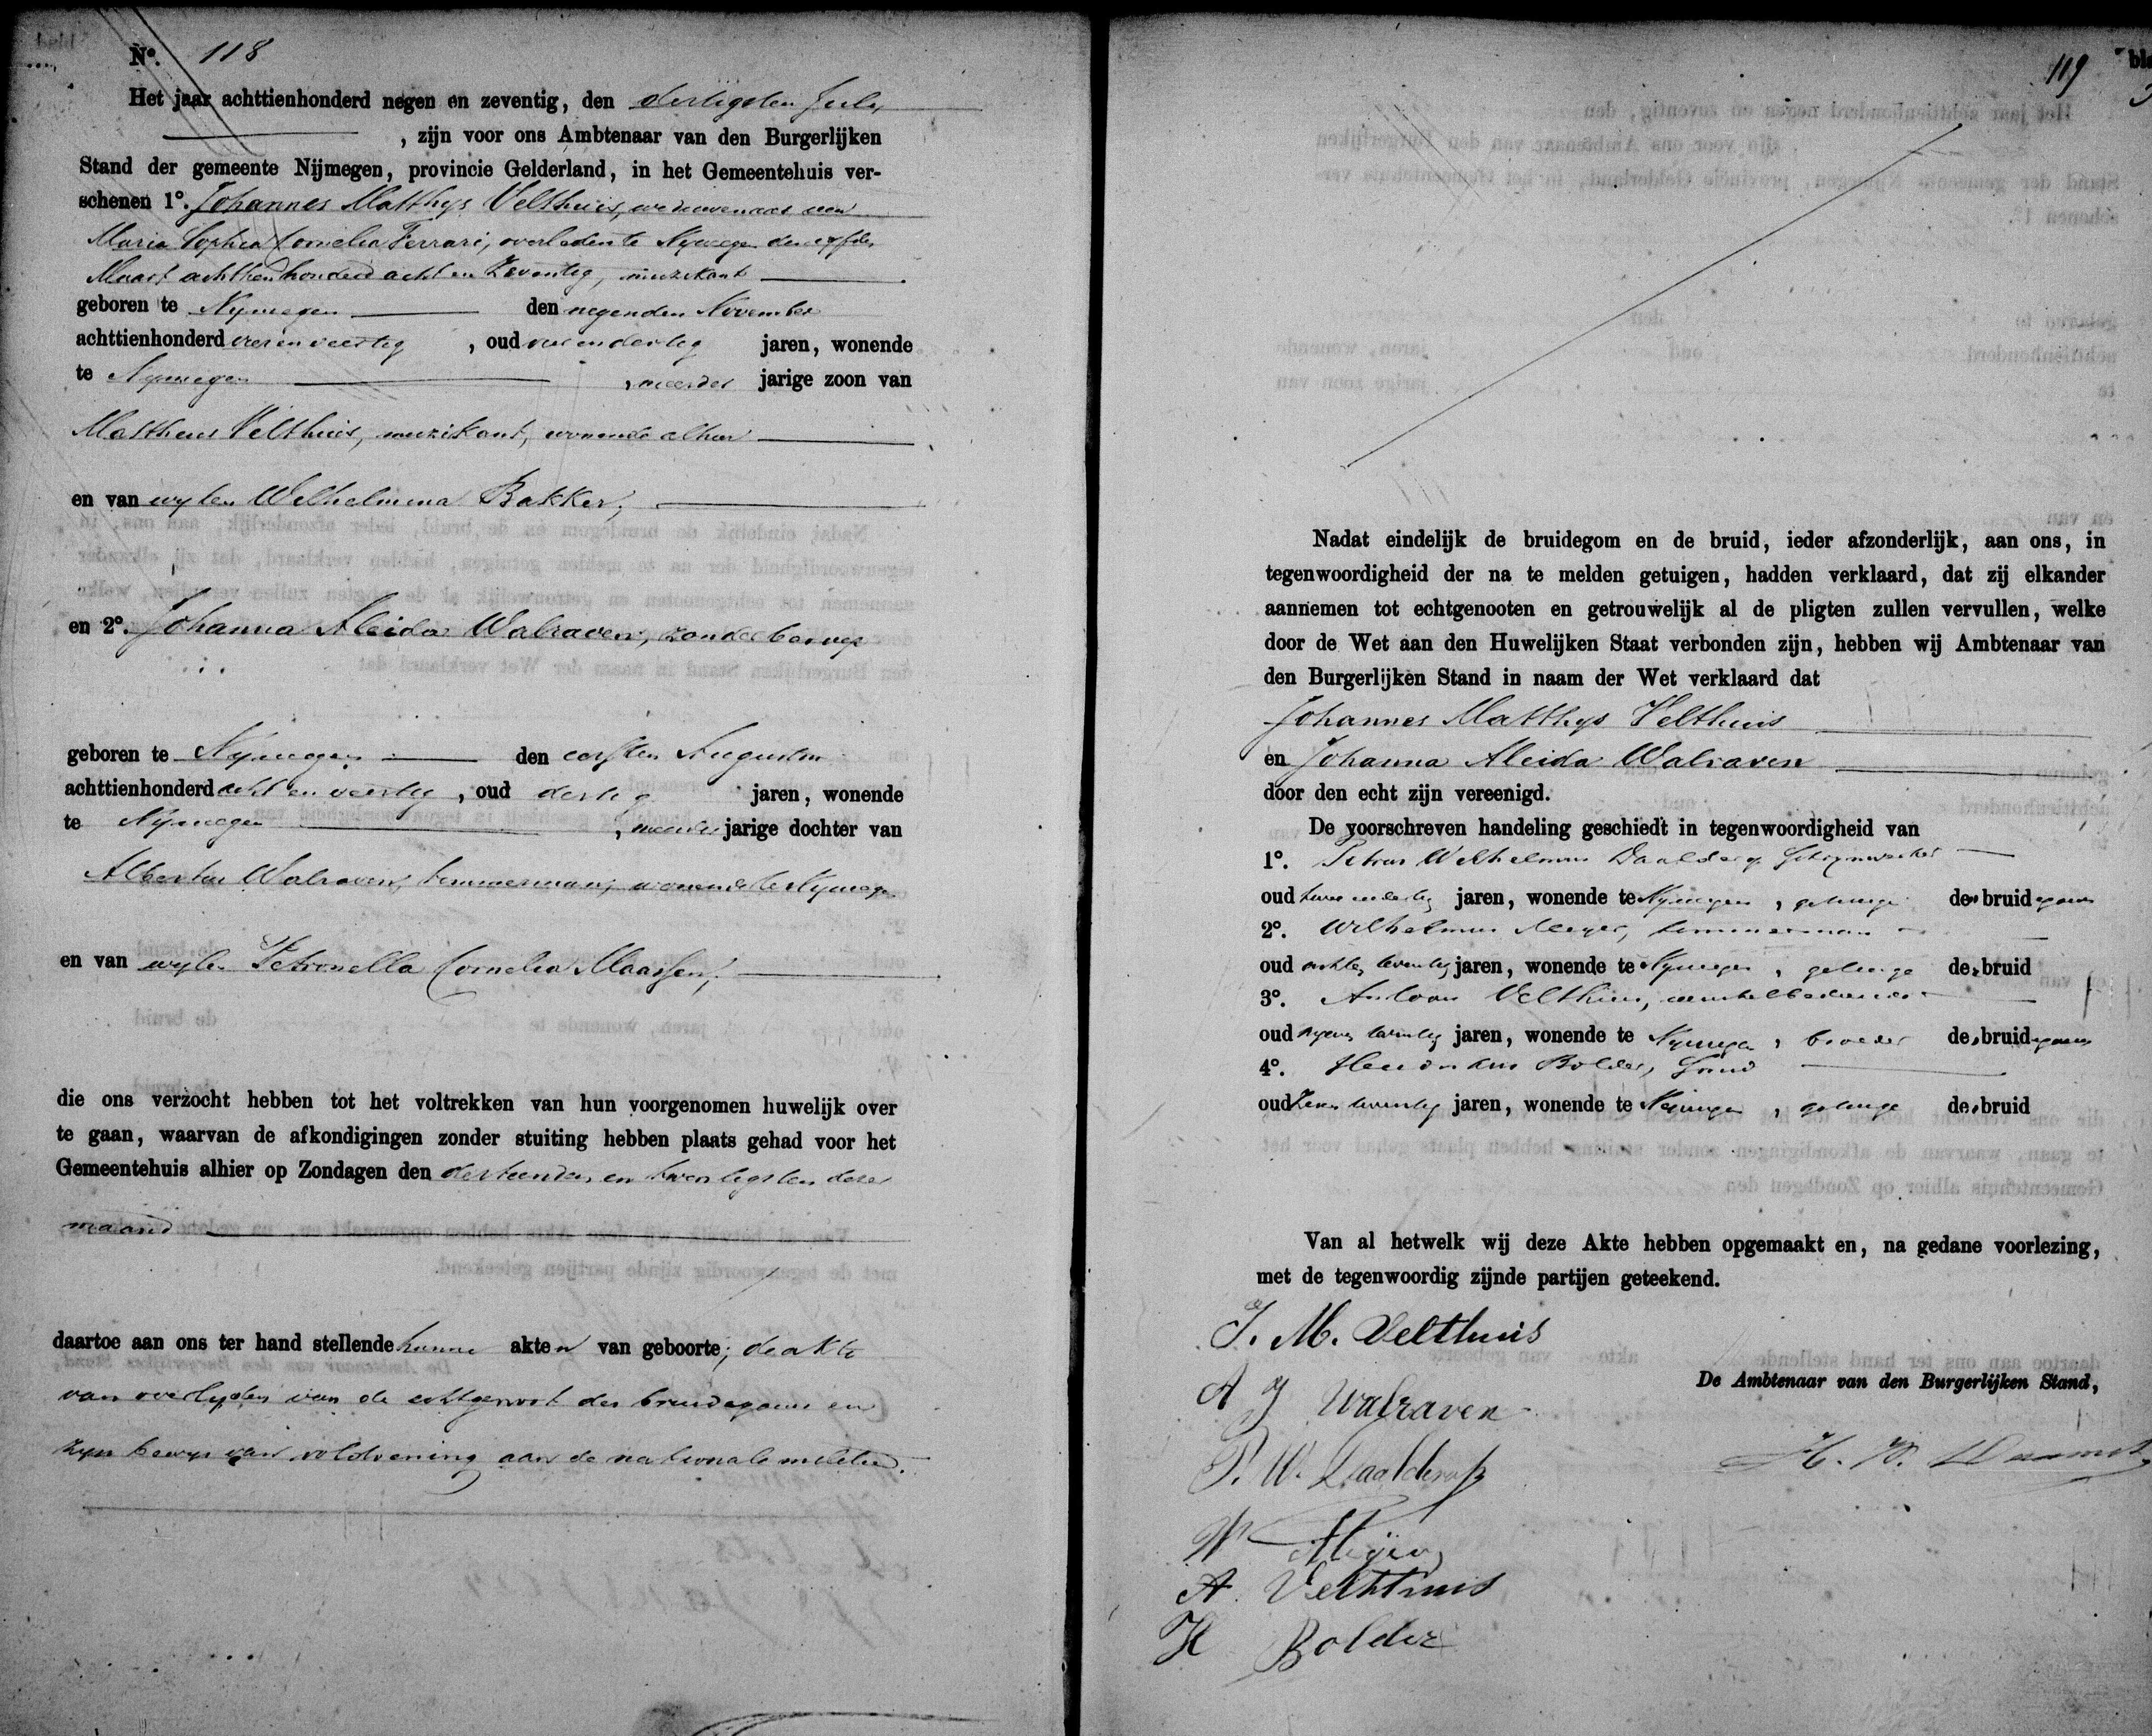 No. 118
Het jaar achttienhonderd negen en zeventig, den dertigsten July
, zijn voor ons Ambtenaar van den Burgerlijken
Stand der gemeente Nijmegen, provincie Gelderland, in het Gemeentehuis ver-
schenen 1o. Johannes Matthys Velthuis, weduwenaar van
Maria Sophia Cornelia Ferrari, overleden te Nymegen den
Maart achttienhonderd acht en zeventig, muzikant
geboren te Nymegen den negenden November
achttienhonderd vier en veertig, oud vier en dertig jaren, wonende
te Nymegen, meerder jarige zoon van
Mattheus Velthuis, muzikant, wonende alhier
en van wylen Wilhelmina Bakker,
en 2o. Johanna Aleida Walraven, zonder beroep
geboren te Nymegen den eersten Augustus
achttienhonderd acht en veertig, oud dertig jaren, wonende
te Nymegen, meerder jarige dochter van
Albertus Walraven, timmerman, wonende te Nymegen
en van wylen Petronella Cornelia Maassen,
die ons verzocht hebben tot het voltrekken van hun voorgenomen huwelijk over
te gaan, waarvan de afkondigingen zonder stuiting hebben plaats gehad voor het
Gemeentehuis alhier op Zondagen den dertienden en twentigsten dezer
maand
daartoe aan ons ter hand stellende hunne akten van geboorte; de akte
van overlyden van de echtgenoot des bruidegoms en
zyn bewys van voldoening aan de nationale militie.
119
Nadat eindelijk de bruidegom en de bruid, ieder afzonderlijk, aan ons, in
tegenwoordigheid der na te melden getuigen, hadden verklaard, dat zij elkander
aannemen tot echtgenooten en getrouwelijk al de pligten zullen vervullen, welke
door de Wet aan den Huwelijken Staat verbonden zijn, hebben wij Ambtenaar van
den Burgerlijken Stand in naam der Wet verklaard dat
Johannes Matthys Velthuis
en Johanna Aleida Walraven
door den echt zijn vereenigd.
De voorschreven handeling geschiedt in tegenwoordigheid van
1o. Petrus Wilhelmus Daalderop
oud twee en dertig jaren, wonende te Nymegen, getuige des bruidegoms
2o. Wilhelmus Meyer, timmerman
oud jaren, wonende te Nymegen, getuige der bruid
3o. Antoon Velthuis, winkelbediende
oud negen en twintig jaren, wonende te Nymegen, broeder des bruidegoms
4o. Hendrikus Bolder,
oud zeven en twintig jaren, wonende te Nymegen, getuige der bruid
Van al hetwelk wij deze Akte hebben opgemaakt en, na gedane voorlezing,
met de tegenwoordig zijnde partijen geteekend.
J. M. Velthuis
De Ambtenaar van den Burgerlijken Stand,
A J Walraven
P. W. Daalderop
W Meijer
A. Velthuis
H Bolder